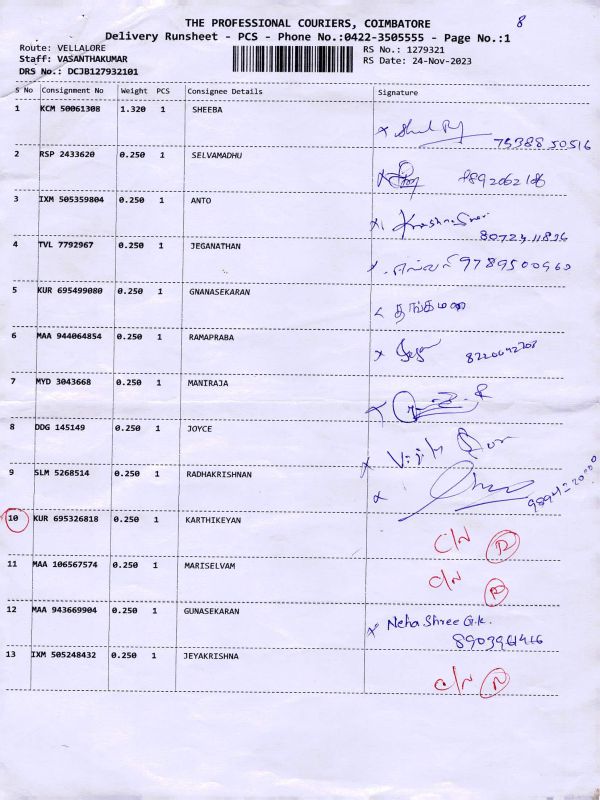 THE PROFESSIONAL COURIERS, COIMBATORE 8
Delivery Runsheet - PCS - Phone No.:0422-3505555 - Page No.:1
Route: VELLALORE RS No.: 1279321
Staff: VASANTHAKUMAR RS Date: 24-Nov-2023
DRS No.: DCJB127932101
S No Consignment No Weight PCS Consignee Details Signature
1 KCM 50061308 1.320 1 SHEEBA
2 RSP 2433620 0.250 1 SELVAMADHU
3 IXM 505359804 0.250 1 ANTO
4 TVL 7792967 0.250 1 JEGANATHAN
5 KUR 695499080 0.250 1 GNANASEKARAN தங்கமணி
6 MAA 944064854 0.250 1 RAMAPRABA
7 MYD 3043668 0.250 1 MANIRAJA
8 DDG 145149 0.250 1 JOYCE
9 SLM 5268514 0.250 1 RADHAKRISHNAN
10 KUR 695326818 0.250 1 KARTHIKEYAN C/N R
11 MAA 106567574 0.250 1 MARISELVAM C/N R
12 MAA 943669904 0.250 1 GUNASEKARAN Neha Shree G.K.
13 IXM 505248432 0.250 1 JEYAKRISHNA C/N R